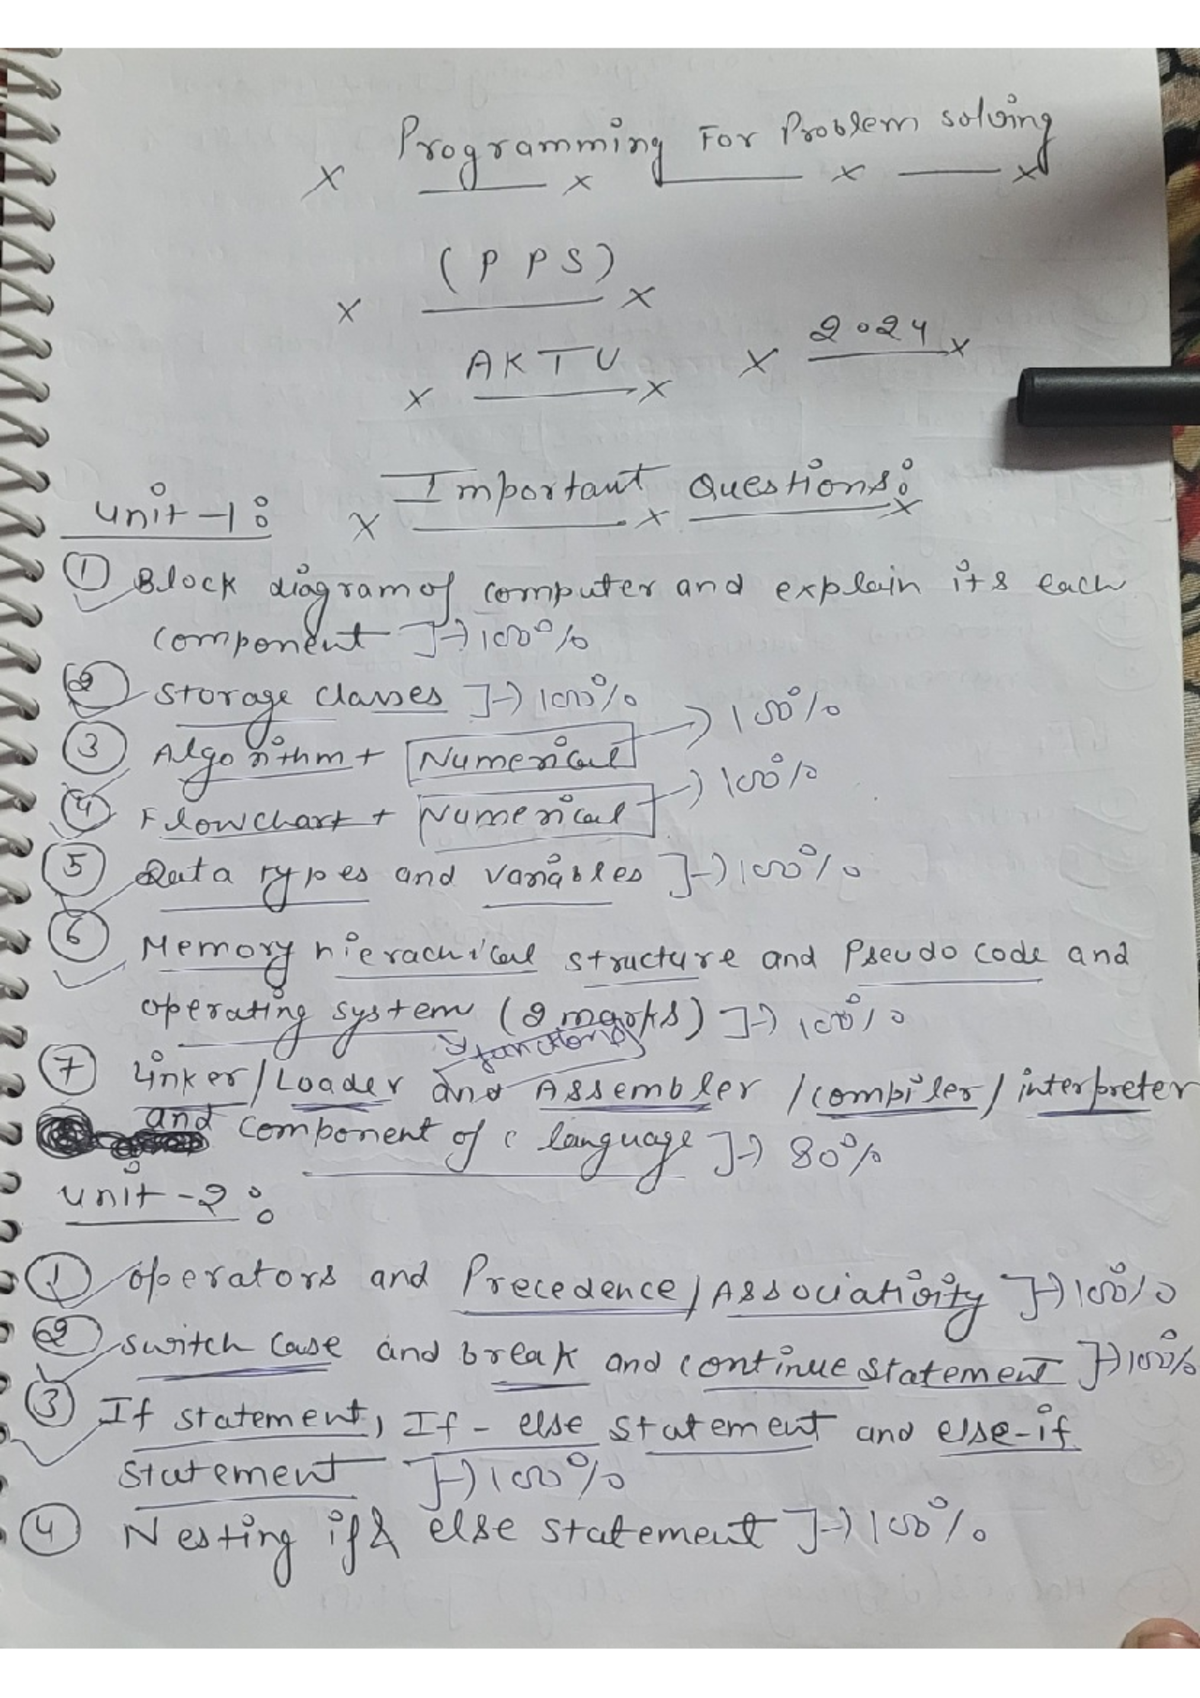 Programming For Problem solving
(PPS)
AKTU 2024
Important Questions:
Unit-1:
① Block diagram of computer and explain its each
component ]→100%
② Storage classes ]→100%
③ Algorithm + Numerical →100%
④ Flowchart + Numerical →100%
⑤ Data types and variables ]→100%
⑥ Memory hierachical structure and Pseudo code and
operating system (2 marks) ]→100%
functions
⑦ Linker/Loader and Assembler/compiler/interpreter
and component of c language ]→80%
Unit-2:
① Operators and Precedence/Associativity ]→100%
② Switch Case and break and continue statement ]→100%
③ If statement, If-else statement and else-if
statement ]→100%
④ Nesting if & else statement ]→100%